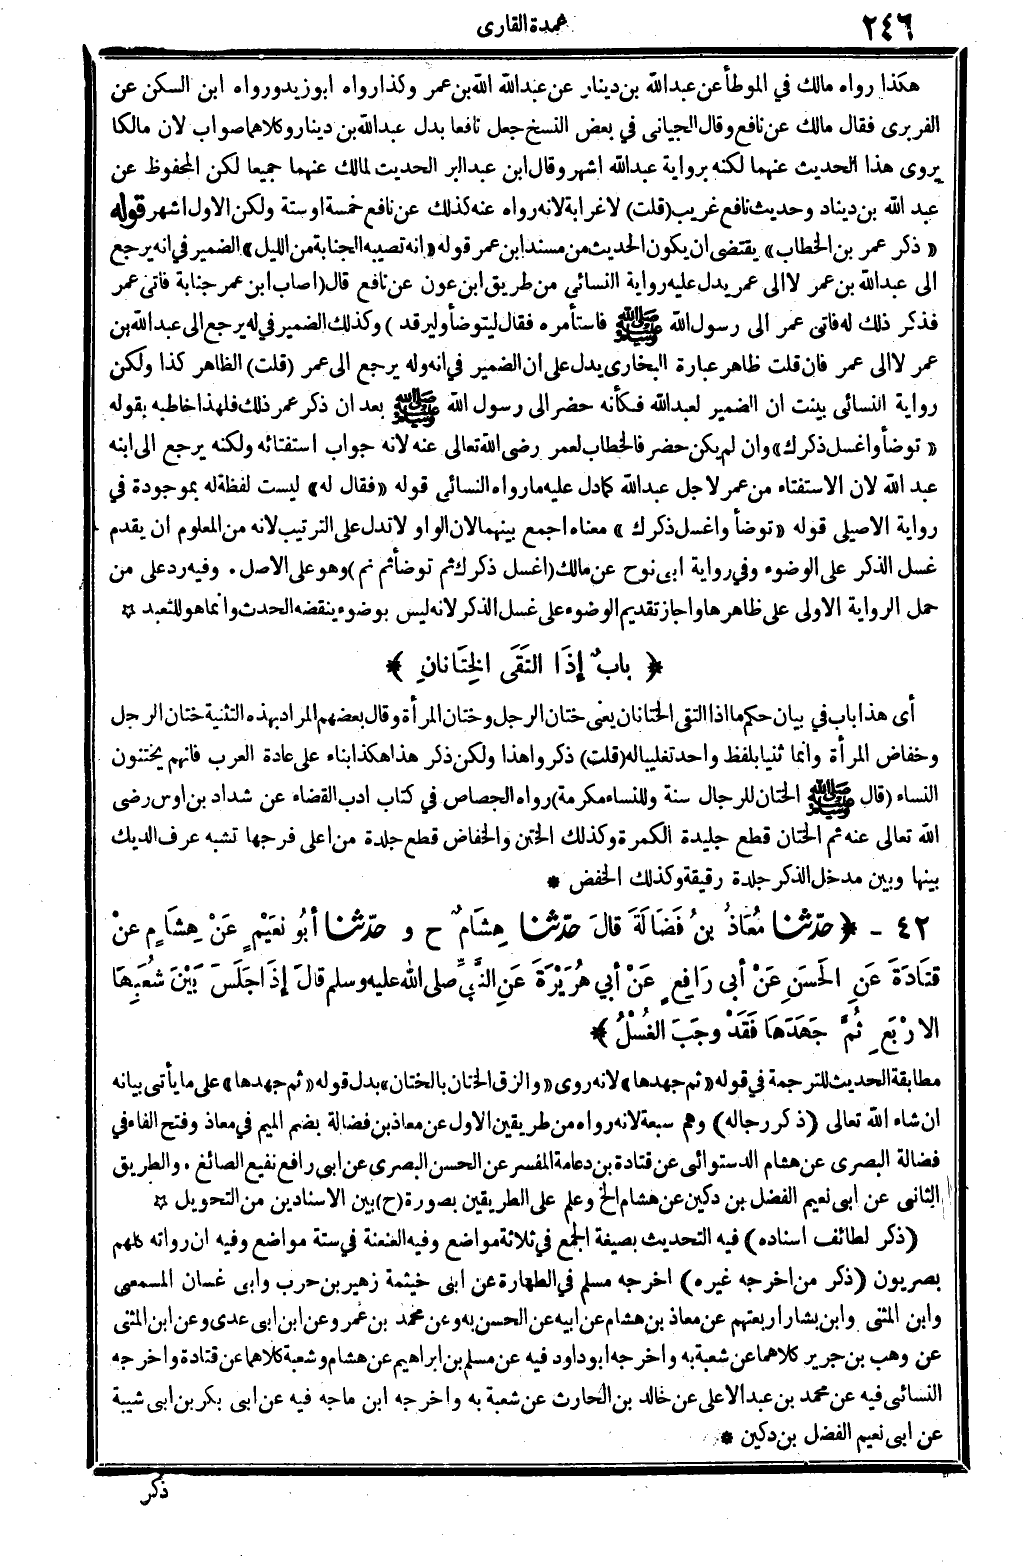 ٢٤٦
عمدة القارى
هكذا رواه مالك في الموطأ عن عبد الله بن دينار عن عبد الله الله بن عمر وكذا رواه ابوزيد ورواه ابن السكن عن
الفربرى فقال مالك عن نافع وقال الجيانى في بعض النسخ جعل نافعا بدل عبد الله بن دينار وكلاهما صواب لان مالكا
يروى هذا الحديث عنهما لكنه برواية عبد الله اشهر وقال ابن عبد البر الحديث لمالك عنهما جميعا لكن المحفوظ عن
عبد الله بن ديناد وحديث نافع غريب (قلت) لا غرابة لانه رواه عنه كذلك عن نافع خمسة اوستة ولكن الاول اشهر قوله
« ذكر عمر بن الخطاب » يقتضى ان يكون الحديث من مسند ابن عمر قوله « انه تصيبه الجنابة من الليل » الضمير في انه يرجع
الى عبد الله بن عمر لا الى عمر يدل عليه رواية النسائى من طريق ابن عون عن نافع قال (اصاب ابن عمر جنابة فاتى عمر
فذكر ذلك له فاتى عمر الى رسول الله ﷺ فاستأمره فقال ليتوضأ وليرقد ) وكذلك الضمير في له يرجع الى عبد الله بن
عمر لا الى عمر فان قلت ظاهر عبارة البخارى يدل على ان الضمير في انه وله يرجع الى عمر (قلت) الظاهر كذا ولكن
رواية النسائى بينت ان الضمير لعبد الله فكأنه حضر الى رسول الله ﷺ بعد ان ذكر عمر ذلك فلهذا خاطبه بقوله
« توضأ واغسل ذكرك » وان لم يكن حضر فالخطاب لعمر رضى الله تعالى عنه لانه جواب استفتائه ولكنه يرجع الى ابنه
عبد الله لان الاستفتاء من عمر لاجل عبد الله كما دل عليه ما رواه النسائى قوله « فقال له » ليست لفظة له بموجودة في
رواية الاصيلى قوله « توضأ واغسل ذكرك » معناه اجمع بينهما لان الواو لا تدل على الترتيب لانه من المعلوم ان يقدم
غسل الذكر على الوضوء وفي رواية ابى نوح عن مالك (اغسل ذكرك ثم توضأ ثم نم) وهو على الاصل . وفيه رد على من
حمل الرواية الاولى على ظاهرها واجاز تقديم الوضوء على غسل الذكر لانه ليس بوضوء ينقضه الحدث وانما هو للتعبد ☆
﴿ بابٌ إذَا التَقَى الخِتَانانِ ﴾
أى هذا باب في بيان حكم ما اذا التقى الختانان يعنى ختان الرجل وختان المرأة وقال بعضهم المراد بهذه التثنية ختان الرجل
وخفاض المرأة وانما ثنيا بلفظ واحد تغليبا له (قلت) ذكروا هذا ولكن ذكر هذا هكذا بناء على عادة العرب فانهم يختنون
النساء (قال ﷺ الختان للرجال سنة وللنساء مكرمة) رواه الجصاص في كتاب ادب القضاء عن شداد بن اوس رضى
الله تعالى عنه ثم الختان قطع جليدة الكمرة وكذلك الختن والخفاض قطع جلدة من اعلى فرجها تشبه عرف الديك
بينها وبين مدخل الذكر جلدة رقيقة وكذلك الخفض *
٤٢ - ﴿ حدّثنا مُعَاذُ بنُ فَضَالَةَ قالَ حدّثنا هِشَامٌ ح و حدّثنا أبُو نعَيْمٍ عَنْ هِشَامٍ عنْ
قتَادَةَ عَنِ الحَسَنِ عَنْ أبى رَافِعٍ عَنْ أبي هُرَيْرَةَ عَنِ النَّبيِّ صلى الله عليه وسلم قالَ إذَا جَلَسَ بَيْنَ شُعَبِهَا
الارْبَعِ ثُمَّ جَهَدَهَا فَقَدْ وجَبَ الغُسْلُ ﴾
مطابقة الحديث للترجمة في قوله « ثم جهدها » لانه روى « والزق الختان بالختان » بدل قوله « ثم جهدها » على ما يأتى بيانه
ان شاء الله تعالى (ذكر رجاله) وهم سبعة لانه رواه من طريقين الاول عن معاذ بن فضالة بضم الميم في معاذ وفتح الفاء في
فضالة البصرى عن هشام الدستوائى عن قتادة بن دعامة المفسر عن الحسن البصرى عن ابى رافع نفيع الصائغ . والطريق
الثانى عن ابى نعيم الفضل بن دكين عن هشام الخ وعلم على الطريقين بصورة (ح) بين الاسنادين من التحويل ☆
(ذكر لطائف اسناده) فيه التحديث بصيغة الجمع في ثلاثة مواضع وفيه العنعنة في ستة مواضع وفيه ان رواته كلهم
بصريون (ذكر من اخرجه غيره) اخرجه مسلم في الطهارة عن ابى خيثمة زهير بن حرب وابى غسان المسمعى
وابن المثنى وابن بشار اربعتهم عن معاذ بن هشام عن ابيه عن الحسن به وعن محمد بن عمر وعن ابن ابى عدى وعن ابن المثنى
عن وهب بن جرير كلاهما عن شعبة به واخرجه ابو داود فيه عن مسلم بن ابراهيم عن هشام وشعبة كلاهما عن قتادة واخرجه
النسائى فيه عن محمد بن عبد الاعلى عن خالد بن الحارث عن شعبة به واخرجه ابن ماجه فيه عن ابى بكر بن ابى شيبة
عن ابى نعيم الفضل بن دكين *
ذكر